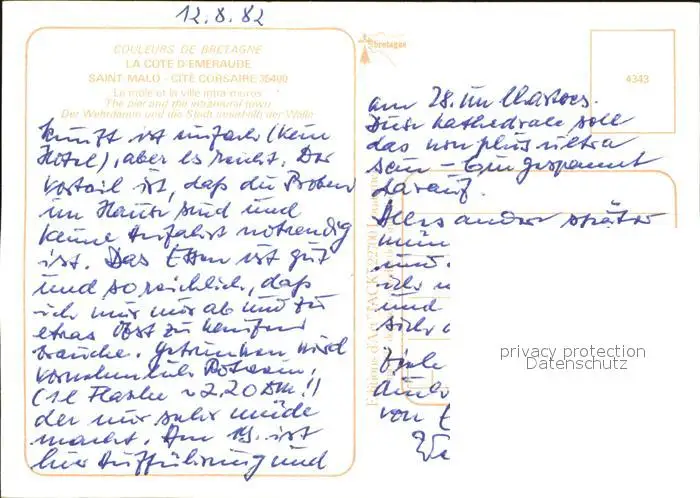 12.8.82
COULEURS DE BRETAGNE
LA COTE D'EMERAUDE
SAINT MALO - CITÉ CORSAIRE 35400
Le môle et la ville intra muros
The pier and the intramural town
Der Wehrdamm und die Stadt innerhalb der Wälle
kunft ist einfach (kein
Hotel), aber es reicht. Der
Vorteil ist, daß die Proben
im Hause sind und
keine Anfahrt notwendig
ist. Das Essen ist gut
und so reichlich, daß
ich mir nur ab und zu
etwas Obst zu kaufen
brauche. Getrunken wird
vornehmlich Rotwein,
(1 l Flasche ~ 2,20 DM!)
der nur sehr müde
macht. Am 19. ist
hier Aufführung und
bretagne
4343
am 28. in Chartres.
Diese Kathedrale soll
das non plus ultra
sein - bin gespannt
darauf.
Alles andere später
und
und
Viele
von
privacy protection
Datenschutz